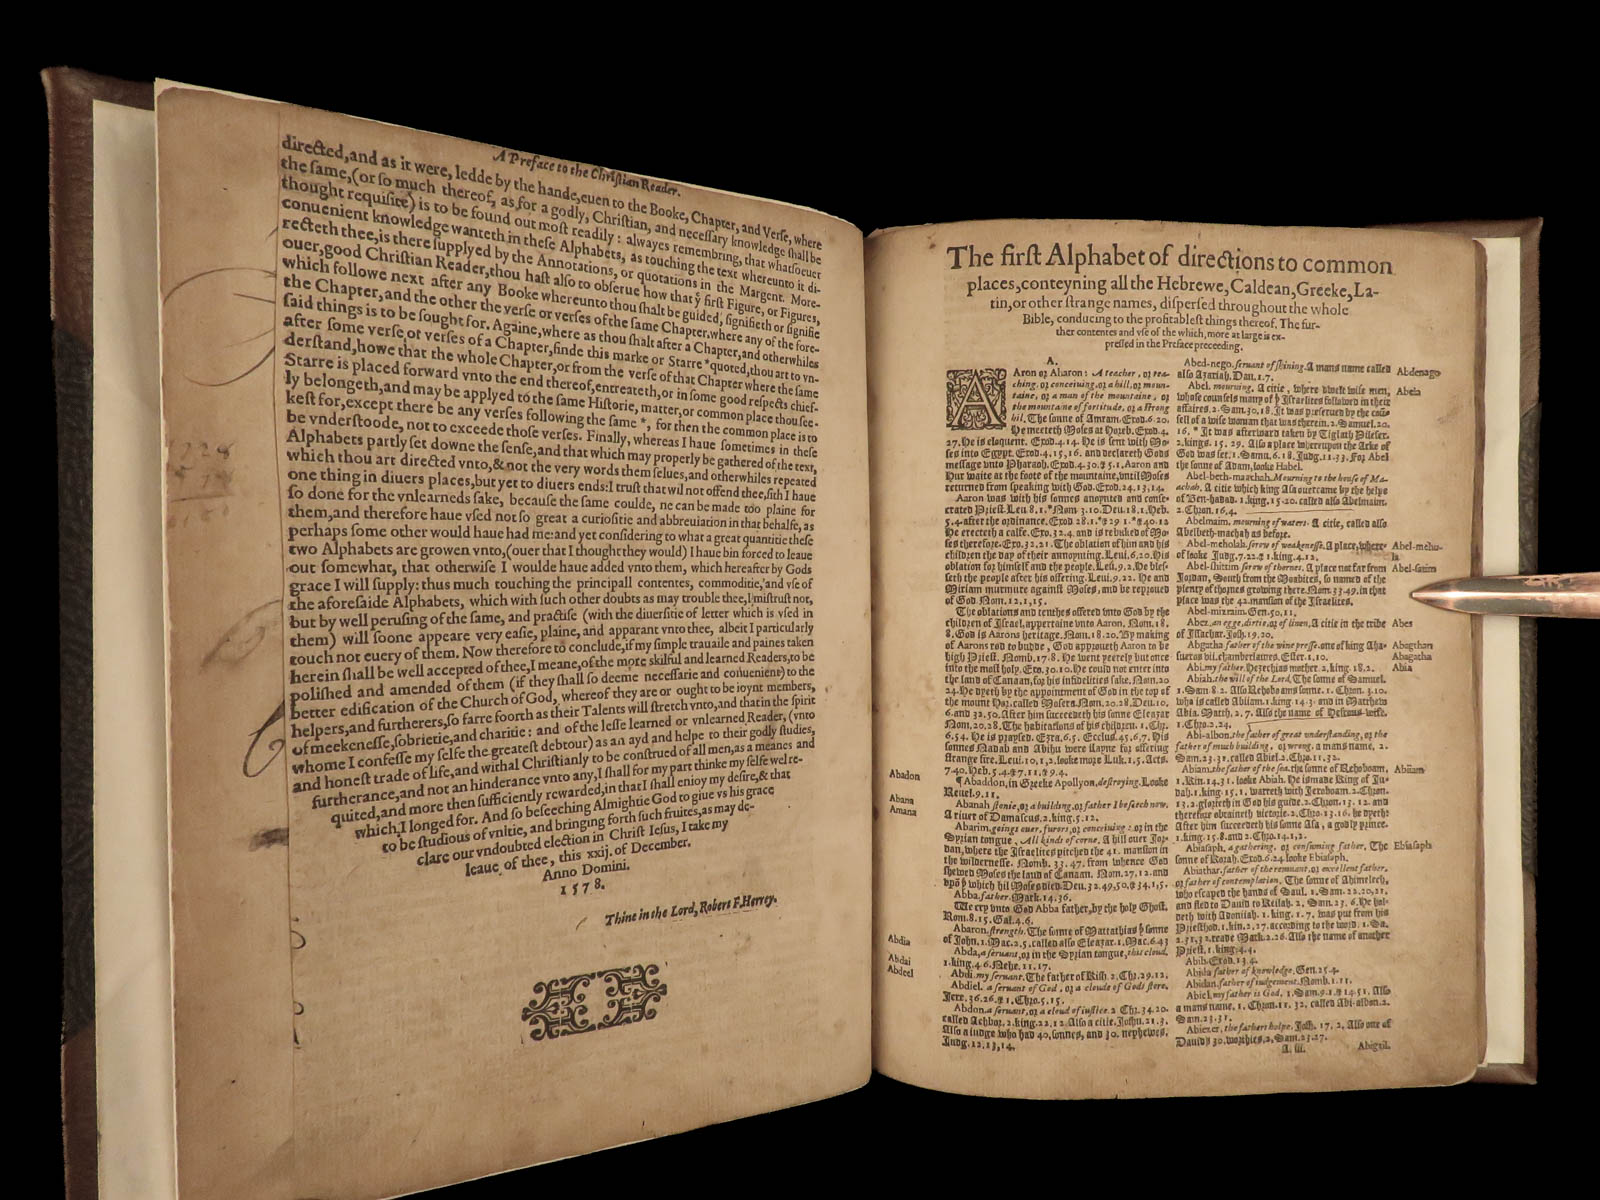 A Preface to the Christian Reader.
directed,and as it were, ledde by the hande,euen to the Booke, Chapter, and Verſe, where
the ſame,(or ſo much thereof, as for a godly, Chriſtian, and neceſſary knowledge ſhall be
thought requiſite) is to be found out moſt readily : alwayes remembring, that whatſoeuer
conuenient knowledge wanteth in theſe Alphabets, as touching the text whereunto it di-
recteth thee,is there ſupplyed by the Annotations, or quotations in the Margent. More-
ouer,good Chriſtian Reader,thou haſt alſo to obſerue how that yͤ firſt Figure, or Figures,
which followe next after any Booke whereunto thou ſhalt be guided, ſignifieth or ſignifie
the Chapter,and the other the verſe or verſes of the ſame Chapter,where any of the fore-
ſaid things is to be ſought for. Againe,where as thou ſhalt after a Chapter,and otherwhiles
after ſome verſe or verſes of a Chapter,finde this marke or Starre *quoted,thou art to vn-
derſtand,howe that the whole Chapter,or from the verſe of that Chapter where the ſame
Starre is placed forward vnto the end thereof,entreateth,or in ſome good reſpects chief-
ly belongeth,and may be applyed to the ſame Hiſtorie, matter,or common place thou ſee-
keſt for,except there be any verſes following the ſame *, for then the common place is to
be vnderſtoode, not to exceede thoſe verſes. Finally, whereas I haue ſometimes in theſe
Alphabets partly ſet downe the ſenſe,and that which may properly be gathered of the text,
which thou art directed vnto,& not the very words them ſelues,and otherwhiles repeated
one thing in diuers places,but yet to diuers ends:I truſt that wil not offend thee,ſith I haue
ſo done for the vnlearneds ſake, becauſe the ſame coulde, ne can be made too plaine for
them,and therefore haue vſed not ſo great a curioſitie and abbreuiation in that behalfe, as
perhaps ſome other would haue had me:and yet conſidering to what a great quantitie theſe
two Alphabets are growen vnto,(ouer that I thought they would) I haue bin forced to leaue
out ſomewhat, that otherwiſe I woulde haue added vnto them, which hereafter by Gods
grace I will ſupply: thus much touching the principall contentes, commoditie,and vſe of
the aforeſaide Alphabets, which with ſuch other doubts as may trouble thee,I miſtruſt not,
but by well peruſing of the ſame, and practiſe (with the diuerſitie of letter which is vſed in
them) will ſoone appeare very eaſie, plaine, and apparant vnto thee, albeit I particularly
touch not euery of them. Now therefore to conclude,if my ſimple trauaile and paines taken
herein ſhall be well accepted of thee,I meane,of the more skilful and learned Readers,to be
poliſhed and amended of them (if they ſhall ſo deeme neceſſarie and conuenient) to the
better edification of the Church of God, whereof they are or ought to be ioynt members,
helpers,and furtherers,ſo farre foorth as their Talents will ſtretch vnto,and that in the ſpirit
of meekeneſſe,ſobrietie,and charitie : and of the leſſe learned or vnlearned Reader, (vnto
whome I confeſſe my ſelfe the greateſt debtour) as an ayd and helpe to their godly ſtudies,
and honeſt trade of life,and withal Chriſtianly to be conſtrued of all men,as a meanes and
furtherance,and not an hinderance vnto any,I ſhall for my part thinke my ſelfe wel re-
quited,and more then ſufficiently rewarded,in that I ſhall enioy my deſire,& that
which I longed for. And ſo beſeeching Almightie God to giue vs his grace
to be ſtudious of vnitie, and bringing forth ſuch fruites,as may de-
clare our vndoubted election in Chriſt Ieſus, I take my
leaue of thee, this xxij. of December.
Anno Domini.
1578.
Thine in the Lord, Robert F.Herrey.
The firſt Alphabet of directions to common
places,conteyning all the Hebrewe, Caldean,Greeke,La-
tin,or other ſtrange names, diſperſed throughout the whole
Bible, conducing to the profitableſt things thereof. The fur-
ther contentes and vſe of the which,more at large is ex-
preſſed in the Preface preceeding.
A.
ARon oꝛ Aharon: A teacher, oꝛ tea-
ching, oꝛ conceiuing, oꝛ a hill, oꝛ moun-
taine, oꝛ a man of the mountaine, oꝛ
the mountaine of fortitude, oꝛ a ſtrong
hil. The ſonne of Amram. Exod.6.20.
He meeteth Moſes at Hoꝛeb. Exod.4.
27. He is eloquent. Exod.4.14. He is ſent with Mo-
ſes into Egypt. Exod.4.15,16. and declareth Gods
meſſage vnto Pharaoh. Exod.4.30.& 5.1. Aaron and
Hur waite at the foote of the mountaine,vntil Moſes
returned from ſpeaking with God. Exod.24.13,14.
Aaron was with his ſonnes anoynted and conſe-
crated Pꝛieſt. Leu.8.1.* Nom.3.10. Deu.18.1. Heb.
5.4. after the oꝛdinance. Exod 28.1.*& 29.1.*& 40.12
He erecteth a calfe. Exo.32.4. and is rebuked of Mo-
ſes therefoꝛe. Exo.32.21. The oblation of him and his
childꝛen the day of their annoynting. Leui.6.20. His
oblation foꝛ himſelf and the people. Leui.9.2. He bleſ-
ſeth the people after his offering. Leui.9.22. He and
Miriam murmure againſt Moſes, and be repꝛoued
of God. Nom.12.1,15.
The oblations and tenthes offered vnto God by the
childꝛen of Iſrael, appertaine vnto Aaron. Nom.18.
8. God is Aarons heritage. Nom.18.20. By making
of Aarons rod to budde, God appꝛoueth Aaron to be
high Pꝛieſt. Nomb.17.8. He went yeerely but once
into the moſt holy. Exo.30.10. He could not enter into
the land of Canaan,foꝛ his infidelities ſake. Nom.20
24. He dyeth by the appointment of God in the top of
the mount Hoꝛ, called Moſera. Nom.20.28. Deu.10.
6. and 32.50. After him ſucceedeth his ſonne Eleazar
Nom.20.28. The habitations of his childꝛen. 1.Chꝛ.
6.54. He is pꝛayſed. Ezra.6.5. Eccluſ.45.6,7. His
ſonnes Nadab and Abihu were ſlayne foꝛ offering
ſtrange fire. Leui.10.1,2. looke moꝛe Luk.1.5. Acts.
7.40. Heb.5.4.& 7.11.& 9.4.
¶ Abaddon,in Greeke Apollyon, deſtroying. Looke
Reuel.9.11.
Abanah ſtonie, oꝛ a building, oꝛ father I beſeech now.
A riuer of Damaſcus. 2.king.5.12.
Abarim, goings ouer, furors, oꝛ conceiuing : oꝛ in the
Syꝛian tongue, All kinds of corne. A hill ouer Joꝛ-
dan, where the Iſraelites pitched the 41. manſion in
the wilderneſſe. Nomb.33.47. from whence God
ſhewed Moſes the land of Canaan. Nom.27.12. and
vpō yͤ which hil Moſes died. Deu.32.49,50.& 34.1,5.
Abba, father. Mark.14.36.
We cry vnto God Abba father,by the holy Ghoſt.
Rom.8.15. Gal.4.6.
Abaron, ſtrength. The ſonne of Mattathias yͤ ſonne
of John. 1.Mac.2.5. called alſo Eleazar. 1.Mac.6.43
Abda, a ſeruant, oꝛ in the Syꝛian tongue, this cloud.
1.king.4.6. Nehe.11.17.
Abdi, my ſeruant. The father of Kiſh. 2.Chꝛ.29.12.
Abdiel, a ſeruant of God, oꝛ a cloude of Gods ſtore.
Jere.36.26.& 1.Chꝛo.5.15.
Abdon, a ſeruant, oꝛ a cloud of iuſtice. 2 Chꝛ.34.20.
called Achboꝛ. 2.king.22.12. Alſo a citie. Joſhu.21.3.
Alſo a iudge who had 40. ſonnes, and 30. nephewes.
Judg.12.13,14.
Abadon
Abana
Amana
Abdia
Abdai
Abdeel
Abed-nego, ſeruant of ſhining. A mans name called
alſo Azariah. Dan.1.7.
Abel, mourning. A citie, where dwelt wiſe men,
whoſe counſels many of yͤ Iſraelites followed in their
affaires. 2.Sam.20.18. It was pꝛeſerued by the coū-
ſell of a wiſe woman that was therein. 2.Samuel.20.
16.* It was afterward taken by Tiglath Pileſer.
2.kings.15.29. Alſo a place whereupon the Arke of
God was ſet. 1.Samu.6.18. Judg.11.33. Foꝛ Abel
the ſonne of Adam, looke Habel.
Abel-beth-maachah, Mourning to the houſe of Ma-
achah. A citie which king Aſa ouercame by the helpe
of Ben-hadad. 1.king.15.20. called alſo Abelmaim.
2.Chꝛon.16.4.
Abelmaim, mourning of waters. A citie, called alſo
Abelbeth-machah as befoꝛe.
Abel-meholah, ſorow of weakeneſſe. A place, where-
of looke Judg.7.22.& 1.king.4.12.
Abel-ſhittim ſorow of thornes. A place not far from
Joꝛdan, South from the Moabites, ſo named of the
plenty of thoꝛnes growing there. Nom.33.49. in that
place was the 42. manſion of the Iſraelites.
Abel-mizraim. Gen.50.11.
Abez, an egge, dirtie, oꝛ of linen. A citie in the tribe
of Iſſachar. Joſh.19.20.
Abagtha father of the wine preſſe. one of king Aha-
ſueros vii. chamberlaines. Eſter.1.10.
Abi, my father. Hezechias mother. 2.king.18.2.
Abiah, the will of the Lord. The ſonne of Samuel.
1.Sam.8.2. Alſo Rehoboams ſonne. 1.Chꝛon.3.10.
who is called Abiiam. 1.king.14.3. and in Matthew
Abia. Matth.1.7. Alſo the name of Heſrons wife.
1.Chꝛo.2.24.
Abi-albon, the father of great vnderſtanding, oꝛ the
father of much building, oꝛ wrong. a mans name. 2.
Sam.23.31. called Abiel. 2.Chꝛo.11.32.
Abiam, the father of the ſea. the ſonne of Rehoboam.
1.Kin.14.31. looke Abiah. He is made King of Ju-
dah. 1.king.15.1. warreth with Jeroboam. 2.Chꝛon.
13.2. gloꝛieth in God his guide. 2.Chꝛon.13.12. and
therefoꝛe obtaineth victoꝛie. 2.Chꝛo.13.16. he dyeth:
After him ſucceedeth his ſonne Aſa, a godly pꝛince.
1.king.15.8. and 2.Chꝛo.14.1,2.
Abiaſaph, a gathering, oꝛ conſuming father. The
ſonne of Koꝛah. Exod.6.24. looke Ebiaſaph.
Abiathar, father of the remnant, oꝛ excellent father,
oꝛ father of contemplation. The ſonne of Ahimelech,
who eſcaped the hands of Saul. 1.Sam.22.20,21.
and fled to Dauid to Keilah. 2.Sam.23.6. He hol-
deth with Adoniiah. 1.king.1.7. was put from his
Pꝛieſthod. 1.kin.2.27. accoꝛding to the woꝛd. 1.Sa.
2.31,32. reade Mark.2.26. Alſo the name of another
Pꝛieſt. 1.king.4.4.
Abib. Exod.13.4.
Abida father of knowledge. Gen.25.4.
Abidan, father of iudgement. Nomb.1.11.
Abiel, my father is God. 1.Sam.9.1.& 14.51. Alſo
a mans name. 1.Chꝛon.11.32. called Abi-albon. 2.
Sam.23.31.
Abiezer, the fathers helpe. Joſh.17.2. Alſo one of
Dauids 30. woꝛthies. 2.Sam.23.27.
A. iii.
Abigail.
Abdenago
Abela
Abel-mehu-
la
Abel-ſatim
Abes
Abagthan
Abagatha
Abia
Abiiam
Ebiaſaph